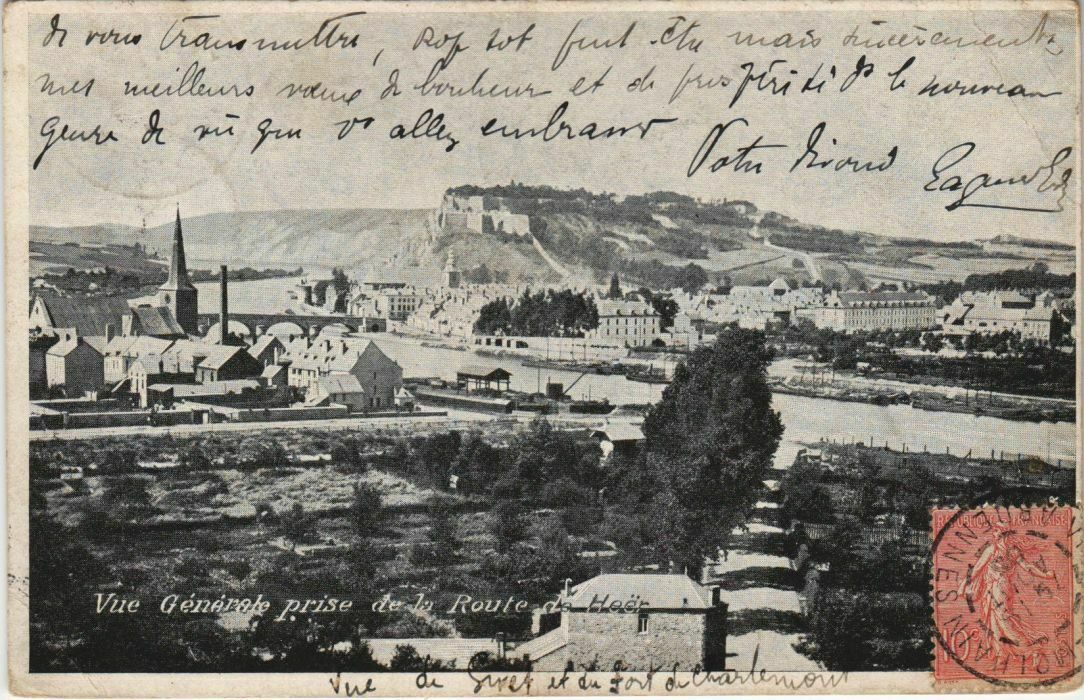 de vous transmettre, trop tot peut-être mais sincèrement
mes meilleurs vœux de bonheur et de prospérité ds le nouveau
genre de vie que vs allez embrasser
Votre
Vue Générale prise de la Route de Heër
Vue de Givet et du fort de Charlemont
REPUBLIQUE FRANÇAISE
10
ARDENNES